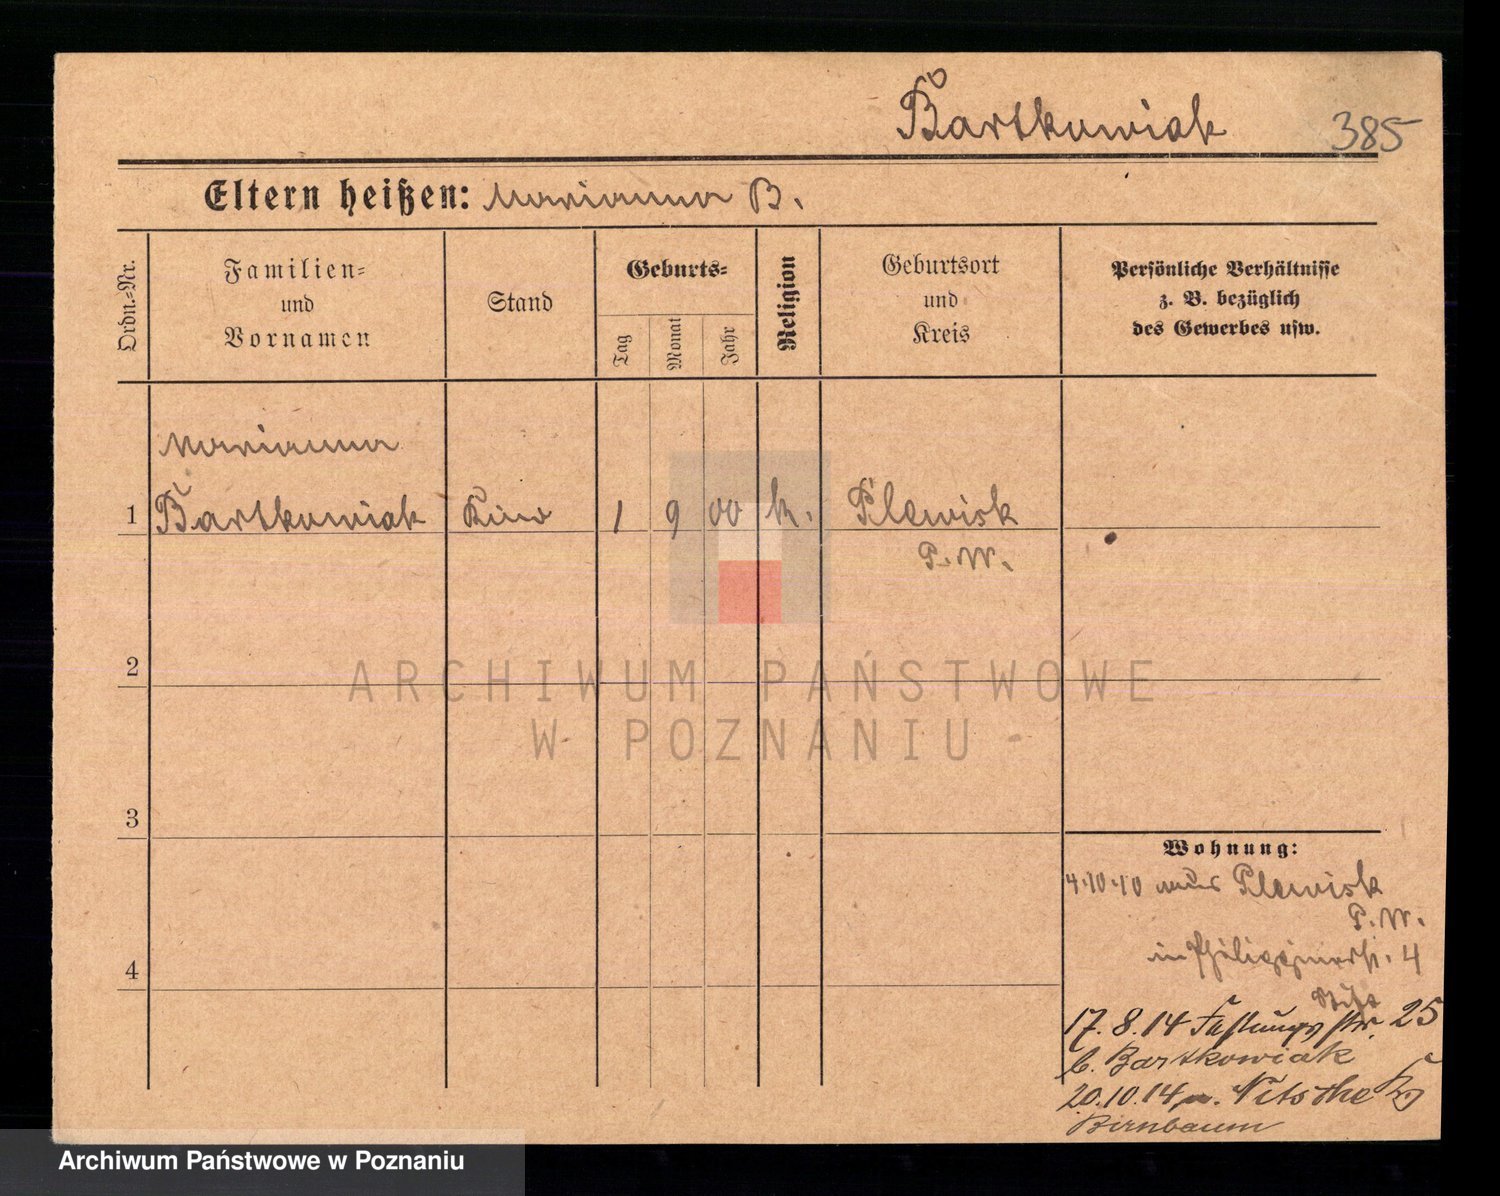 Bartkowiak 385
Eltern heißen: Marianna B.
Ordn.-Nr.
Familien-
und
Vornamen
Stand
Geburts-
Tag
Monat
Jahr
Religion
Geburtsort
und
Kreis
Persönliche Verhältnisse
z. B. bezüglich
des Gewerbes usw.
Marianna
1 Bartkowiak Kind 1 9 00 k. Plewisk
P. W.
2
3
4
Wohnung:
4.10.10 aus Plewisk
P. W.
in 4
17.8.14 Festungsstr. 25
b. Bartkowiak
20.10.14 n. Kr.
Birnbaum
ARCHIWUM PAŃSTWOWE
W POZNANIU
Archiwum Państwowe w Poznaniu